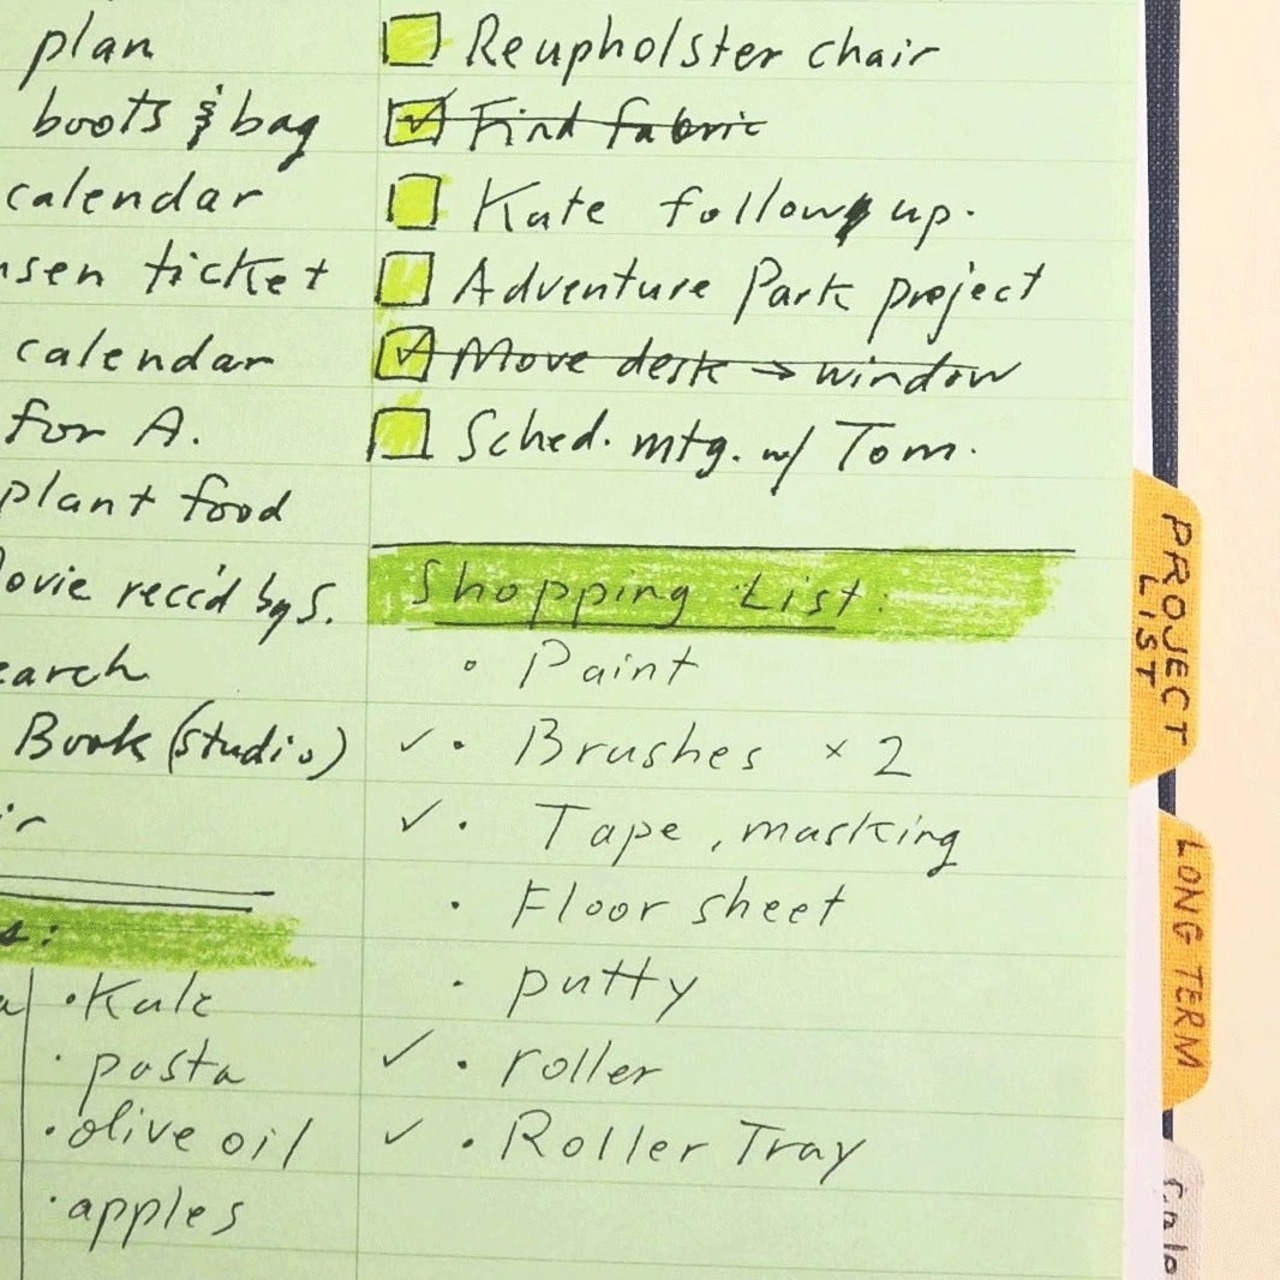 plan
boots & bag
calendar
ticket
calendar
for A.
plant food
rec'd by S.
Book (studio)
• Kale
• pasta
• olive oil
• apples
Reupholster chair
Find fabric
Kate follow up.
Adventure Park project
Move desk → window
Sched. mtg. w/ Tom.
Shopping List:
• Paint
✓ • Brushes × 2
✓ • Tape, masking
• Floor sheet
• putty
✓ • roller
✓ • Roller Tray
PROJECT
LIST
LONG TERM